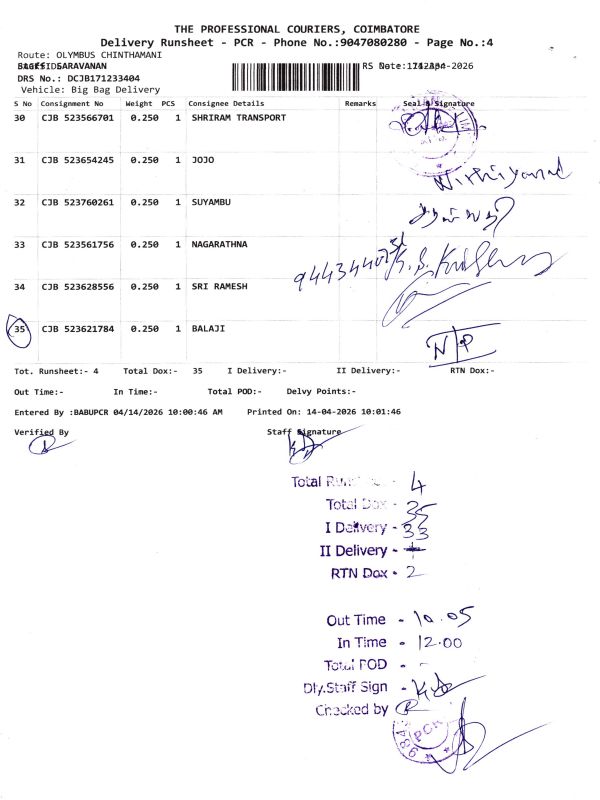 THE PROFESSIONAL COURIERS, COIMBATORE
Delivery Runsheet - PCR - Phone No.:9047080280 - Page No.:4
Route: OLYMBUS CHINTHAMANI
SARAVANAN
DRS No.: DCJB171233404
Vehicle: Big Bag Delivery
S No Consignment No Weight PCS Consignee Details Remarks Seal & Signature
30 CJB 523566701 0.250 1 SHRIRAM TRANSPORT
31 CJB 523654245 0.250 1 JOJO
Nithiyanand
32 CJB 523760261 0.250 1 SUYAMBU
33 CJB 523561756 0.250 1 NAGARATHNA
34 CJB 523628556 0.250 1 SRI RAMESH
35 CJB 523621784 0.250 1 BALAJI
N/P
Tot. Runsheet:- 4 Total Dox:- 35 I Delivery:- II Delivery:- RTN Dox:-
Out Time:- In Time:- Total POD:- Delvy Points:-
Entered By :BABUPCR 04/14/2026 10:00:46 AM Printed On: 14-04-2026 10:01:46
Verified By Staff Signature
Total - 4
Total Dox - 35
I Delivery - 33
II Delivery -
RTN Dox - 2
Out Time - 10.05
In Time - 12.00
Total POD - -
Dly.Staff Sign -
Checked by
PCR